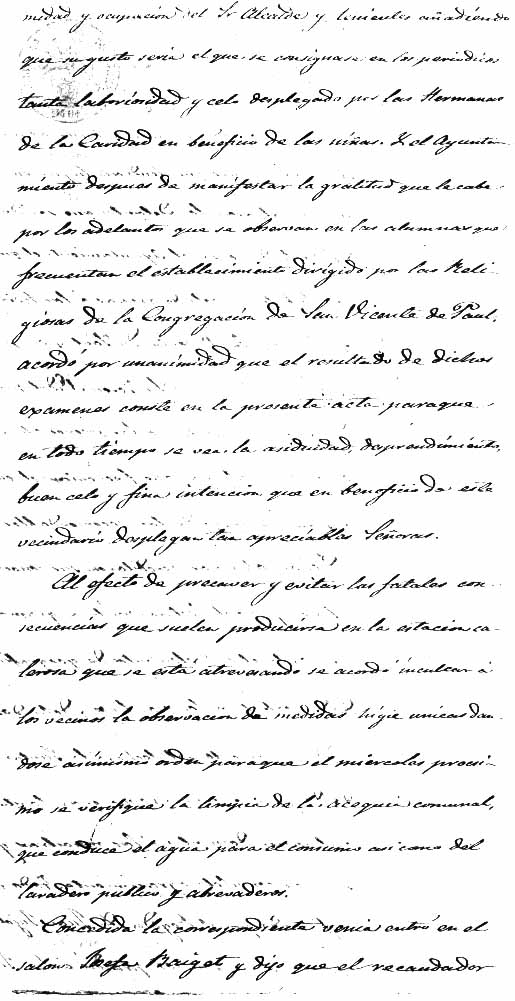 medad y ocupación del Sr Alcalde y tenientes añadiendo
que su gusto seria el que se consignase en los periodicos
tanta laboriosidad y celo desplegado por las Hermanas
de la Caridad en beneficio de las niñas. Y el Ayunta
miento despues de manifestar la gratitud que le cabe
por los adelantos que se observan en las alumnas que
frecuentan el establecimiento dirigido por las Reli
giosas de la Congregacion de San Vicente de Paul,
acordó por unanimidad que el resultado de dichos
examenes conste en la presente acta paraque
en todo tiempo se vea la asiduidad, desprendimiento,
buen celo y fina intencion que en beneficio de este
vecindario desplegan tan apreciables Señoras.
Al efecto de precaver y evitar las fatales con
secuencias que suelen producirse en la estacion ca
lerosa que se está atravesando se acordó inculcar á
los vecinos la observacion de medidas higienicas dan
dose asimismo orden paraque el miercoles procsi
mo se verifique la limpia de la acequia comunal,
que conduce el agua para el consumo asi como del
lavadero publico y abrevaderos.
Concedida la correspondiente venia entró en el
salon Josefa Baiget y dijo que el recaudador